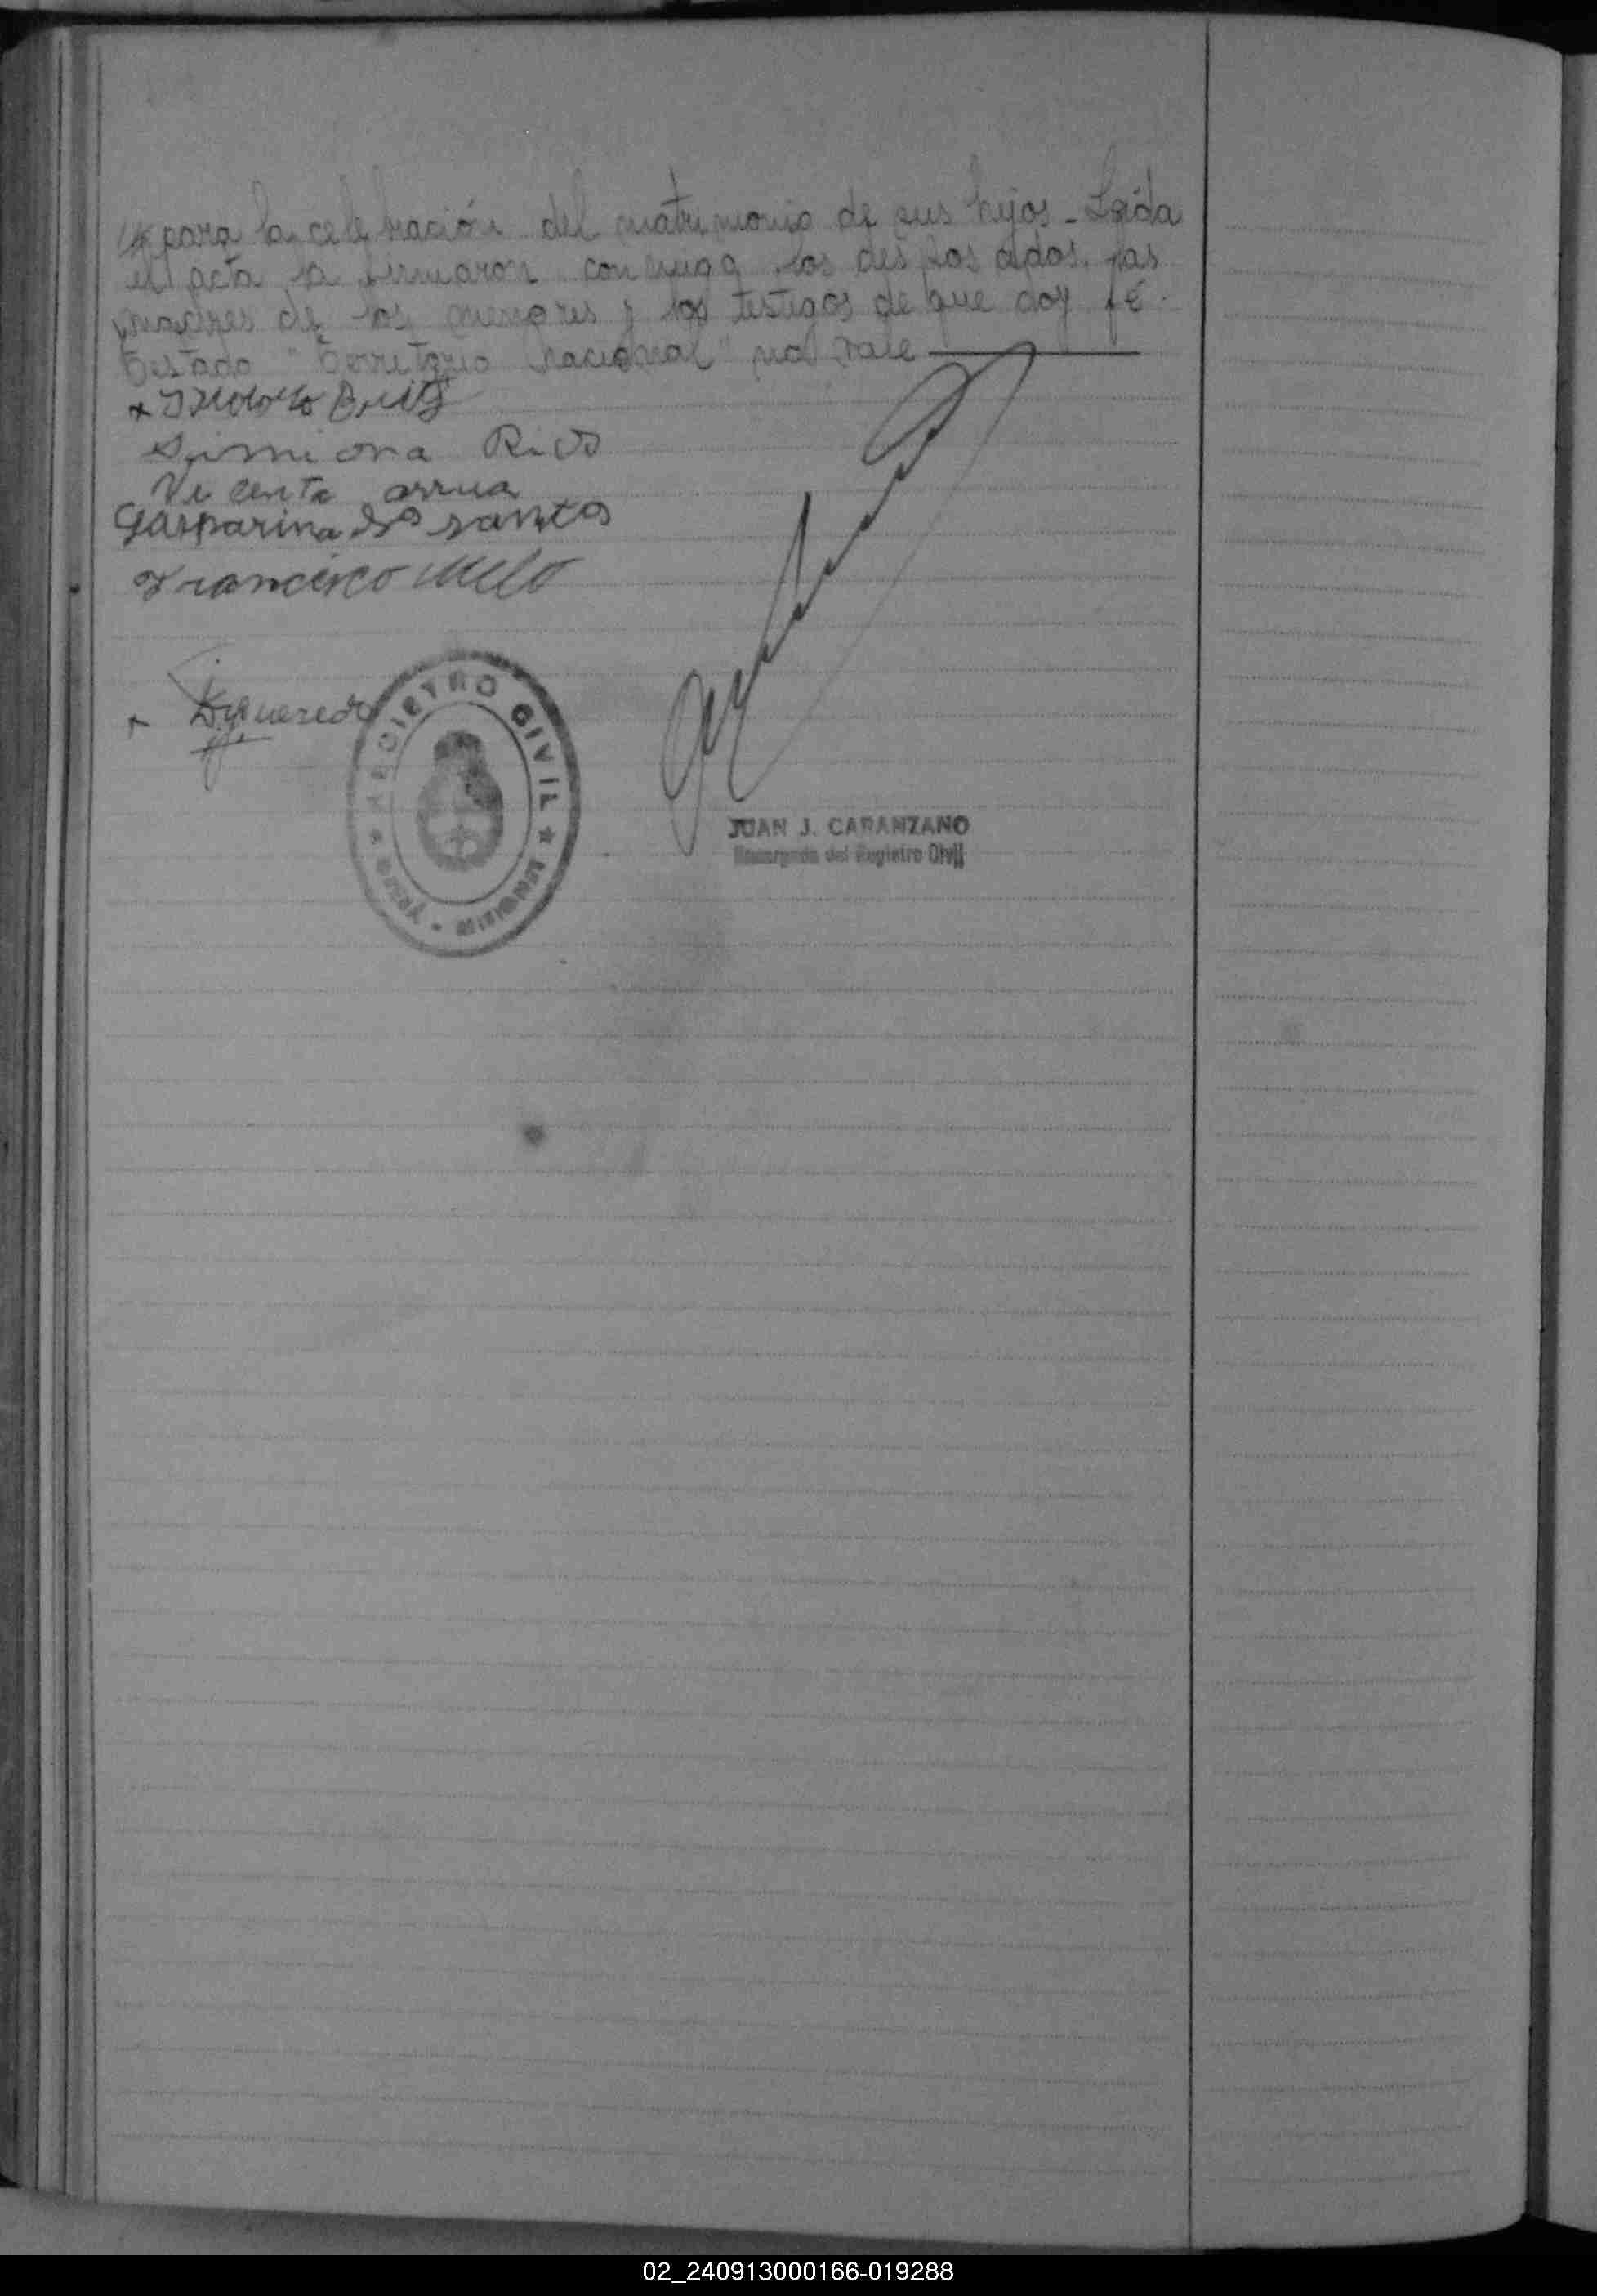 para la celebración del matrimonio de sus hijos - Leida
el acta la firmaron conmigo los desposados, las
madres de los menores y los testigos de que doy fé.
Testado "Territorio Nacional" no vale
Simiona Rios
Vicenta arrua
Gasparina Ds santos
Francisco Melo
REGISTRO CIVIL
MISIONES
JUAN J. CARANZANO
Encargado del Registro Civil
02_240913000166-019288